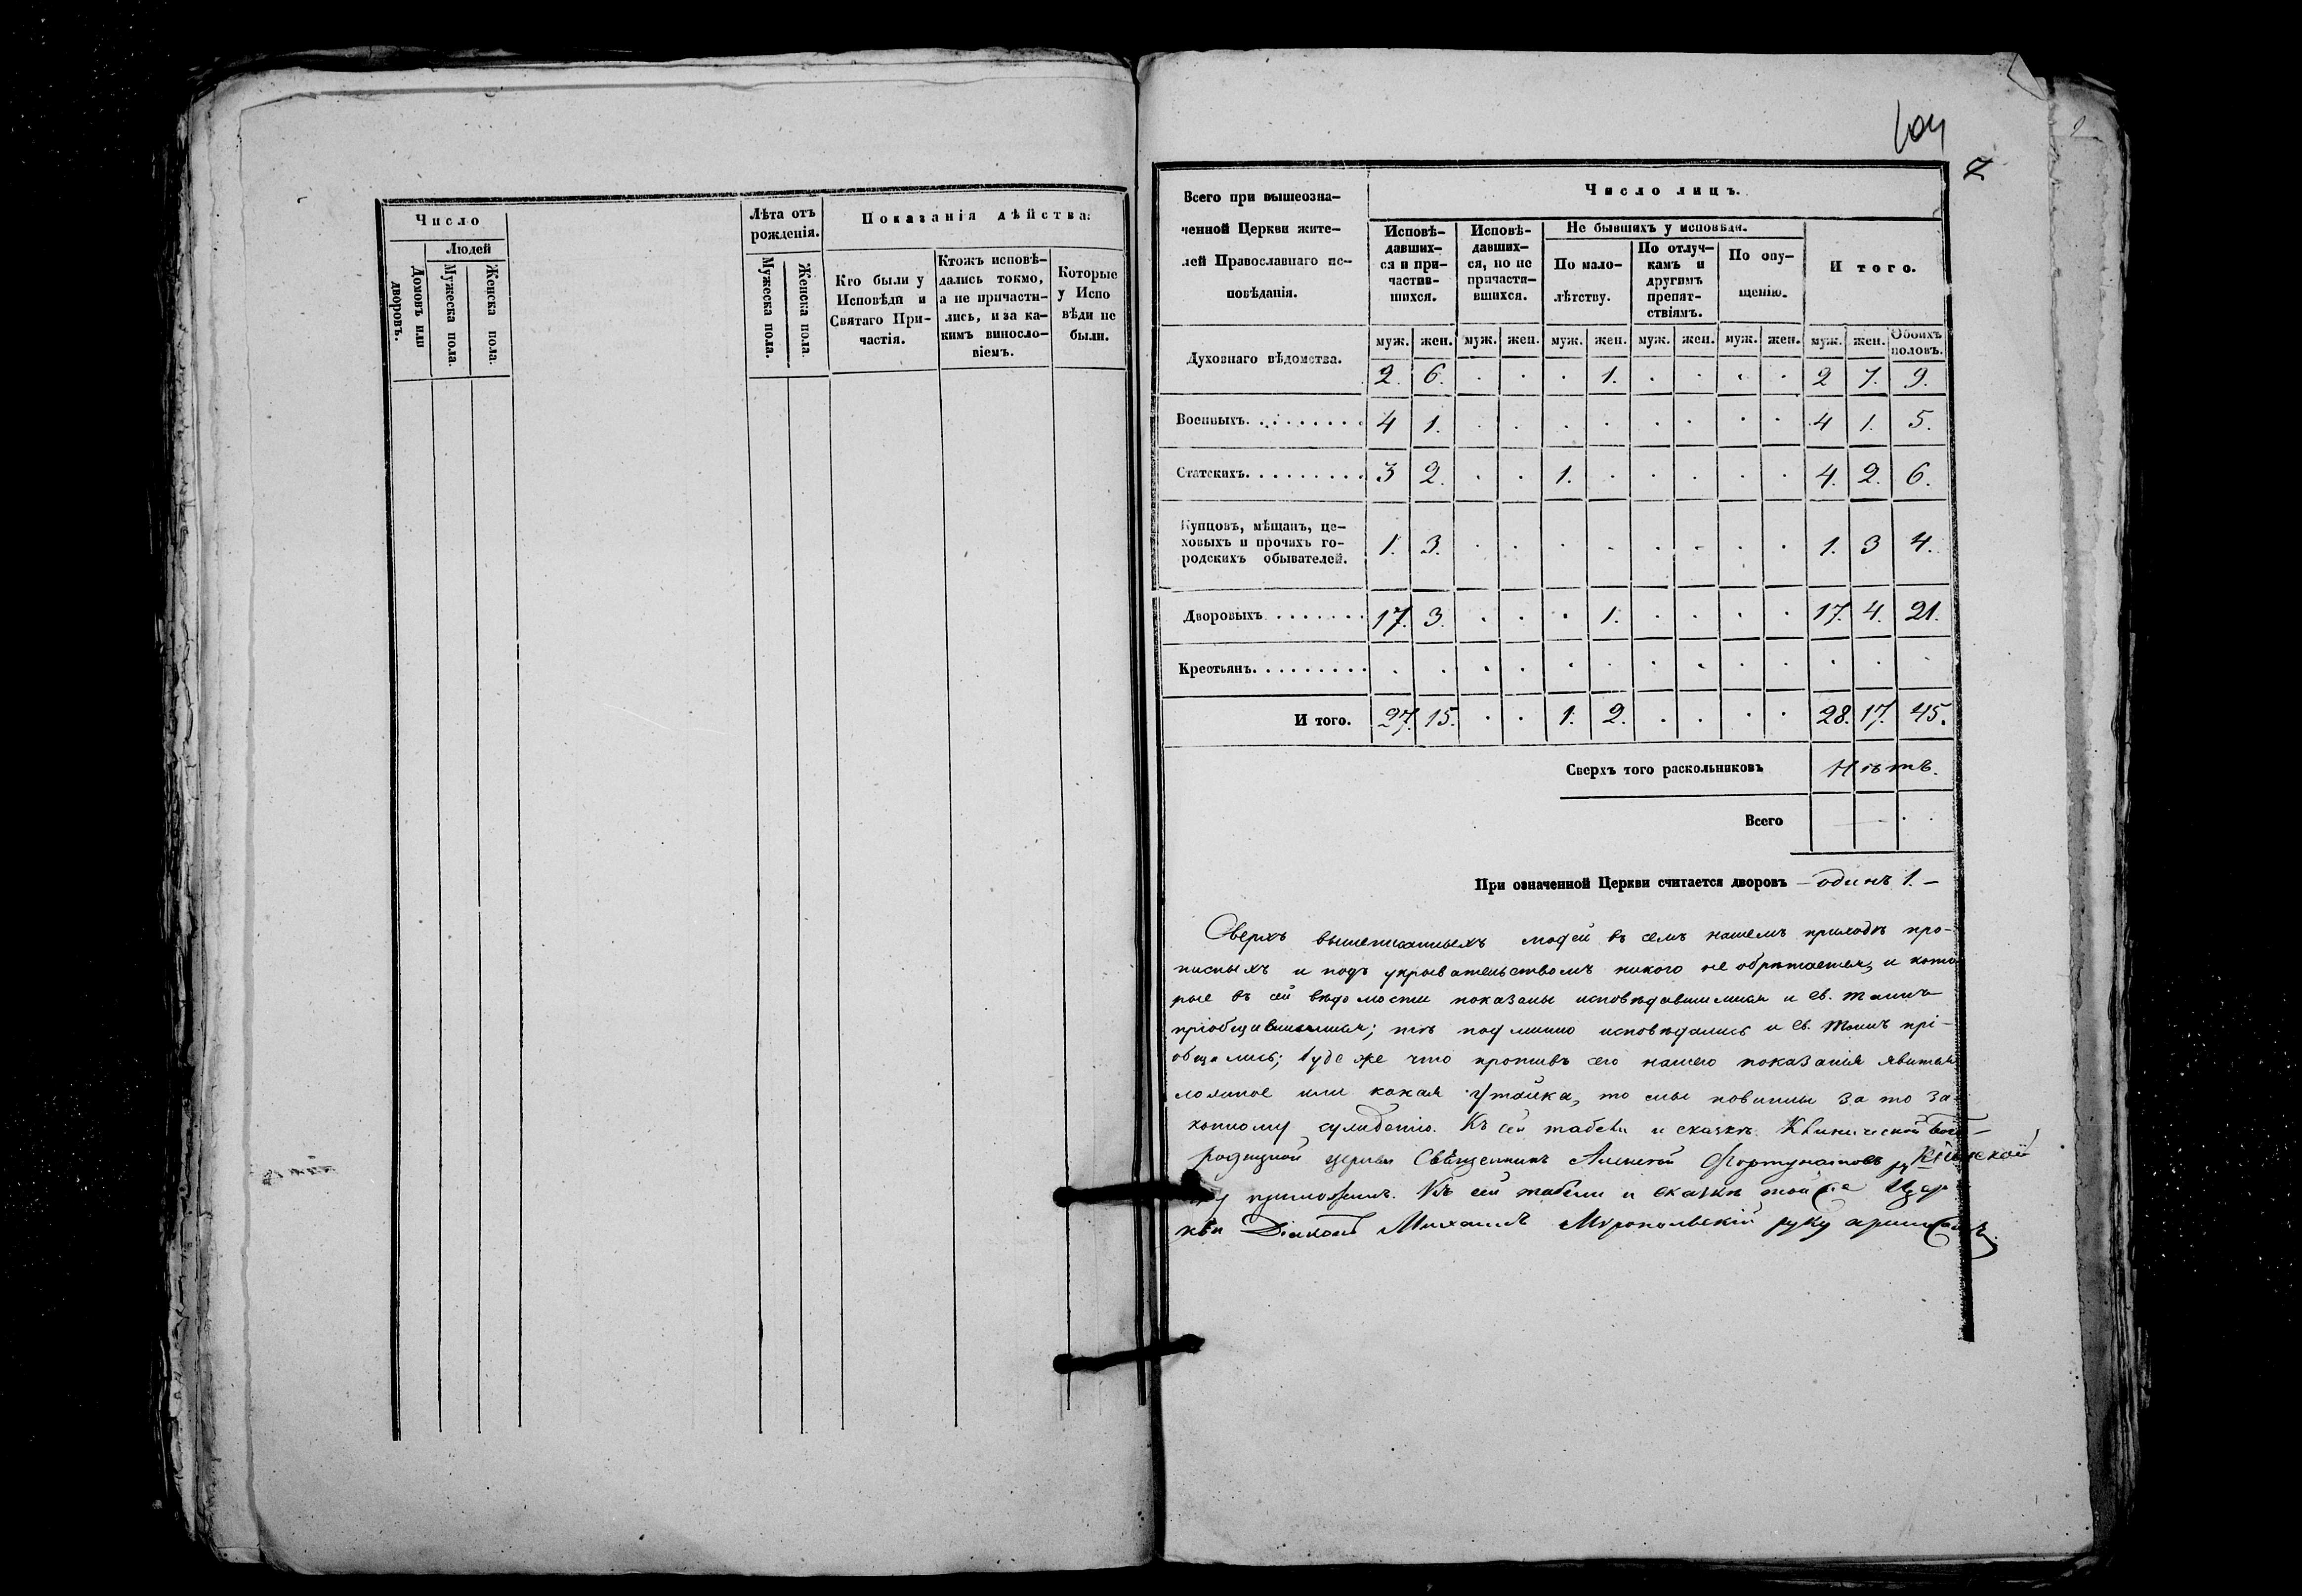 Число
Людей
Домовъ или дворовъ.
Мужеска пола.
Женска пола.
Лѣта отъ
рожденія.
Мужеска пола.
Женска пола.
Показанія дѣйства:
Кто были у
Исповѣди и
Святаго При-
частія.
Ктожъ исповѣ-
дались токмо,
а не причасти-
лись, и за ка-
кимъ виносло-
віемъ.
Которые
у Испо
вѣди не
были.
104
7
Всего при вышеозна-
ченной Церкви жите-
лей Православнаго ис-
повѣданія.
Число лицъ.
Исповѣ-
давших-
ся и при-
частив-
шихся.
Исповѣ-
давших-
ся, но не
причасти-
вшихся.
Не бывшихъ у исповѣди.
По мало-
лѣтству.
По отлуч-
камъ и
другимъ
препят-
ствіямъ.
По опу-
щенію.
И того.
муж. жен. муж. жен. муж. жен. муж. жен. муж. жен. муж. жен. Обоихъ половъ.
Духовнаго вѣдомства. 2. 6. . . . 1. . . . . 2 7. 9.
Военныхъ. . . . . . . . . 4 1. . . . . . . . . 4 1. 5.
Статскихъ. . . . . . . . . 3 2. . . 1. . . . . . 4. 2. 6.
Купцовъ, мѣщанъ, це-
ховыхъ и прочахъ го-
родскихъ обывателей. 1. 3. . . . . . . . . 1. 3 4.
Дворовыхъ . . . . . . . 17. 3. . . . 1. . . . . 17. 4. 21.
Крестьянъ. . . . . . . . . . . . . . . . . . . . . .
И того. 27. 15. . . 1. 2. . . . . 28. 17. 45.
Сверхъ того раскольниковъ Нѣтъ.
Всего
При означенной Церкви считается дворовъ — одинъ 1. —
Сверхъ вышеписанныхъ людей въ семъ нашемъ приходѣ про-
писныхъ и подъ укрывательствомъ никого не обрѣтается, и кото
рые въ сей вѣдомости показаны исповѣдавшимися и св. таинъ
пріобщившимися; тѣ подлинно исповѣдались и св. таинъ прі-
общались; буде же что противъ сего нашего показанія явится
ложное или какая утайка, то мы повинны за то за
конному сужденію. Къ сей табели и сказкѣ Клинической Бого-
родицкой церкви Священникъ Алексѣй Фортунатовъ
приложилъ. Къ сей табели и сказкѣ той же Цер
кви Діаконъ Михаилъ Міропольскій руку приложилъ.